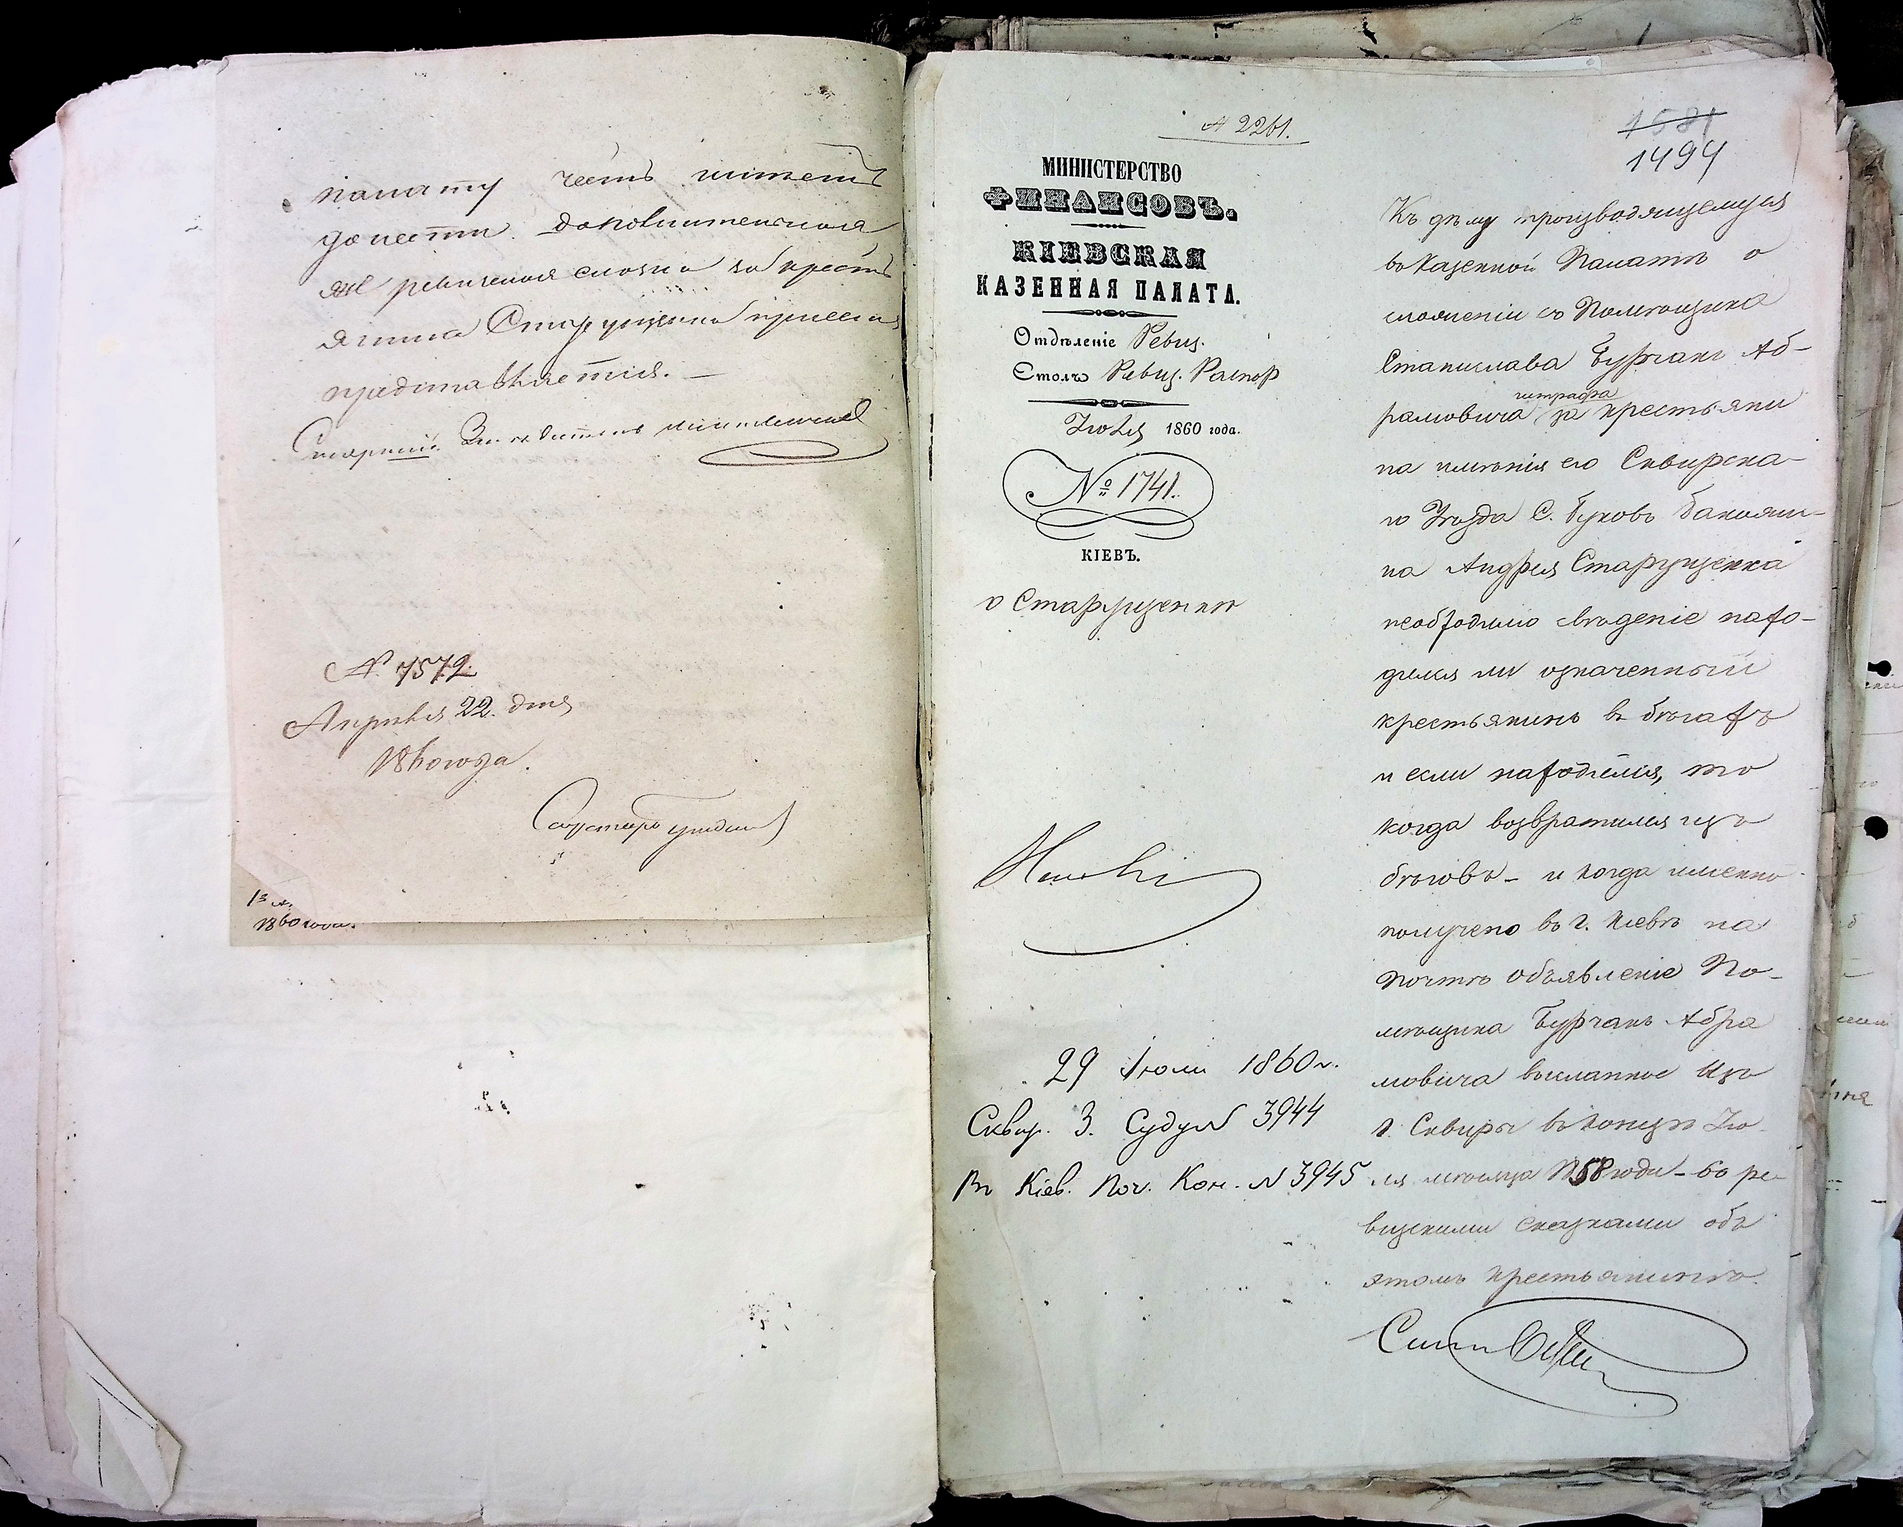 палату честь имѣетъ
донести дополнительная
же ревизская сказка за крестъ
янина Старущенка при семъ
представляется.
Старшій Засѣдатель
№ 7572
Апрѣля 22. дня
1860 года.
Секретарь
13
1860 года.
№ 2261.
1581
1494
МИНИСТЕРСТВО
ФИНАНСОВЪ.
КІЕВСКАЯ
КАЗЕННАЯ ПАЛАТА.
Отдѣленіе Ревиз.
Столъ Ревиз. Распор
Іюля 1860 года.
№ 1741.
КІЕВЪ.
о Старущенкѣ
29 Іюли 1860 г.
Сквир. З. Суду № 3944
Въ Кіев. Поч. Кон. № 3945
Къ дѣлу производящемуся
въ Казенной Палатѣ о
сложеніи съ Помѣщика
Станислава Бурчакъ Аб-
штрафа
рамовича за крестьяни
на имѣнія его Сквирска-
го Уѣзда С. Буковъ
на Андрея Старущенка
необходимо свѣденіе нахо-
дился ли означенный
крестьянинъ въ бѣгахъ
и если находился, то
когда возвратился изъ
бѣговъ – и когда именно
получено въ г. Кіевѣ на
почтѣ объявленіе По-
мѣщика Бурчакъ-Абра
мовича высланное изъ
г. Сквиры въ концѣ Ію
ля мѣсяца 1858 года – со ре-
визскими сказками объ
этомъ крестьянинѣ.